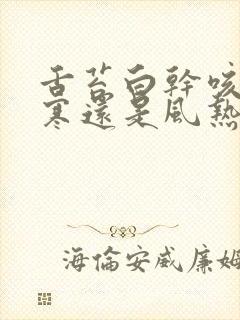 舌苔白幹咳
寒還是風熱
海倫安威廉姆